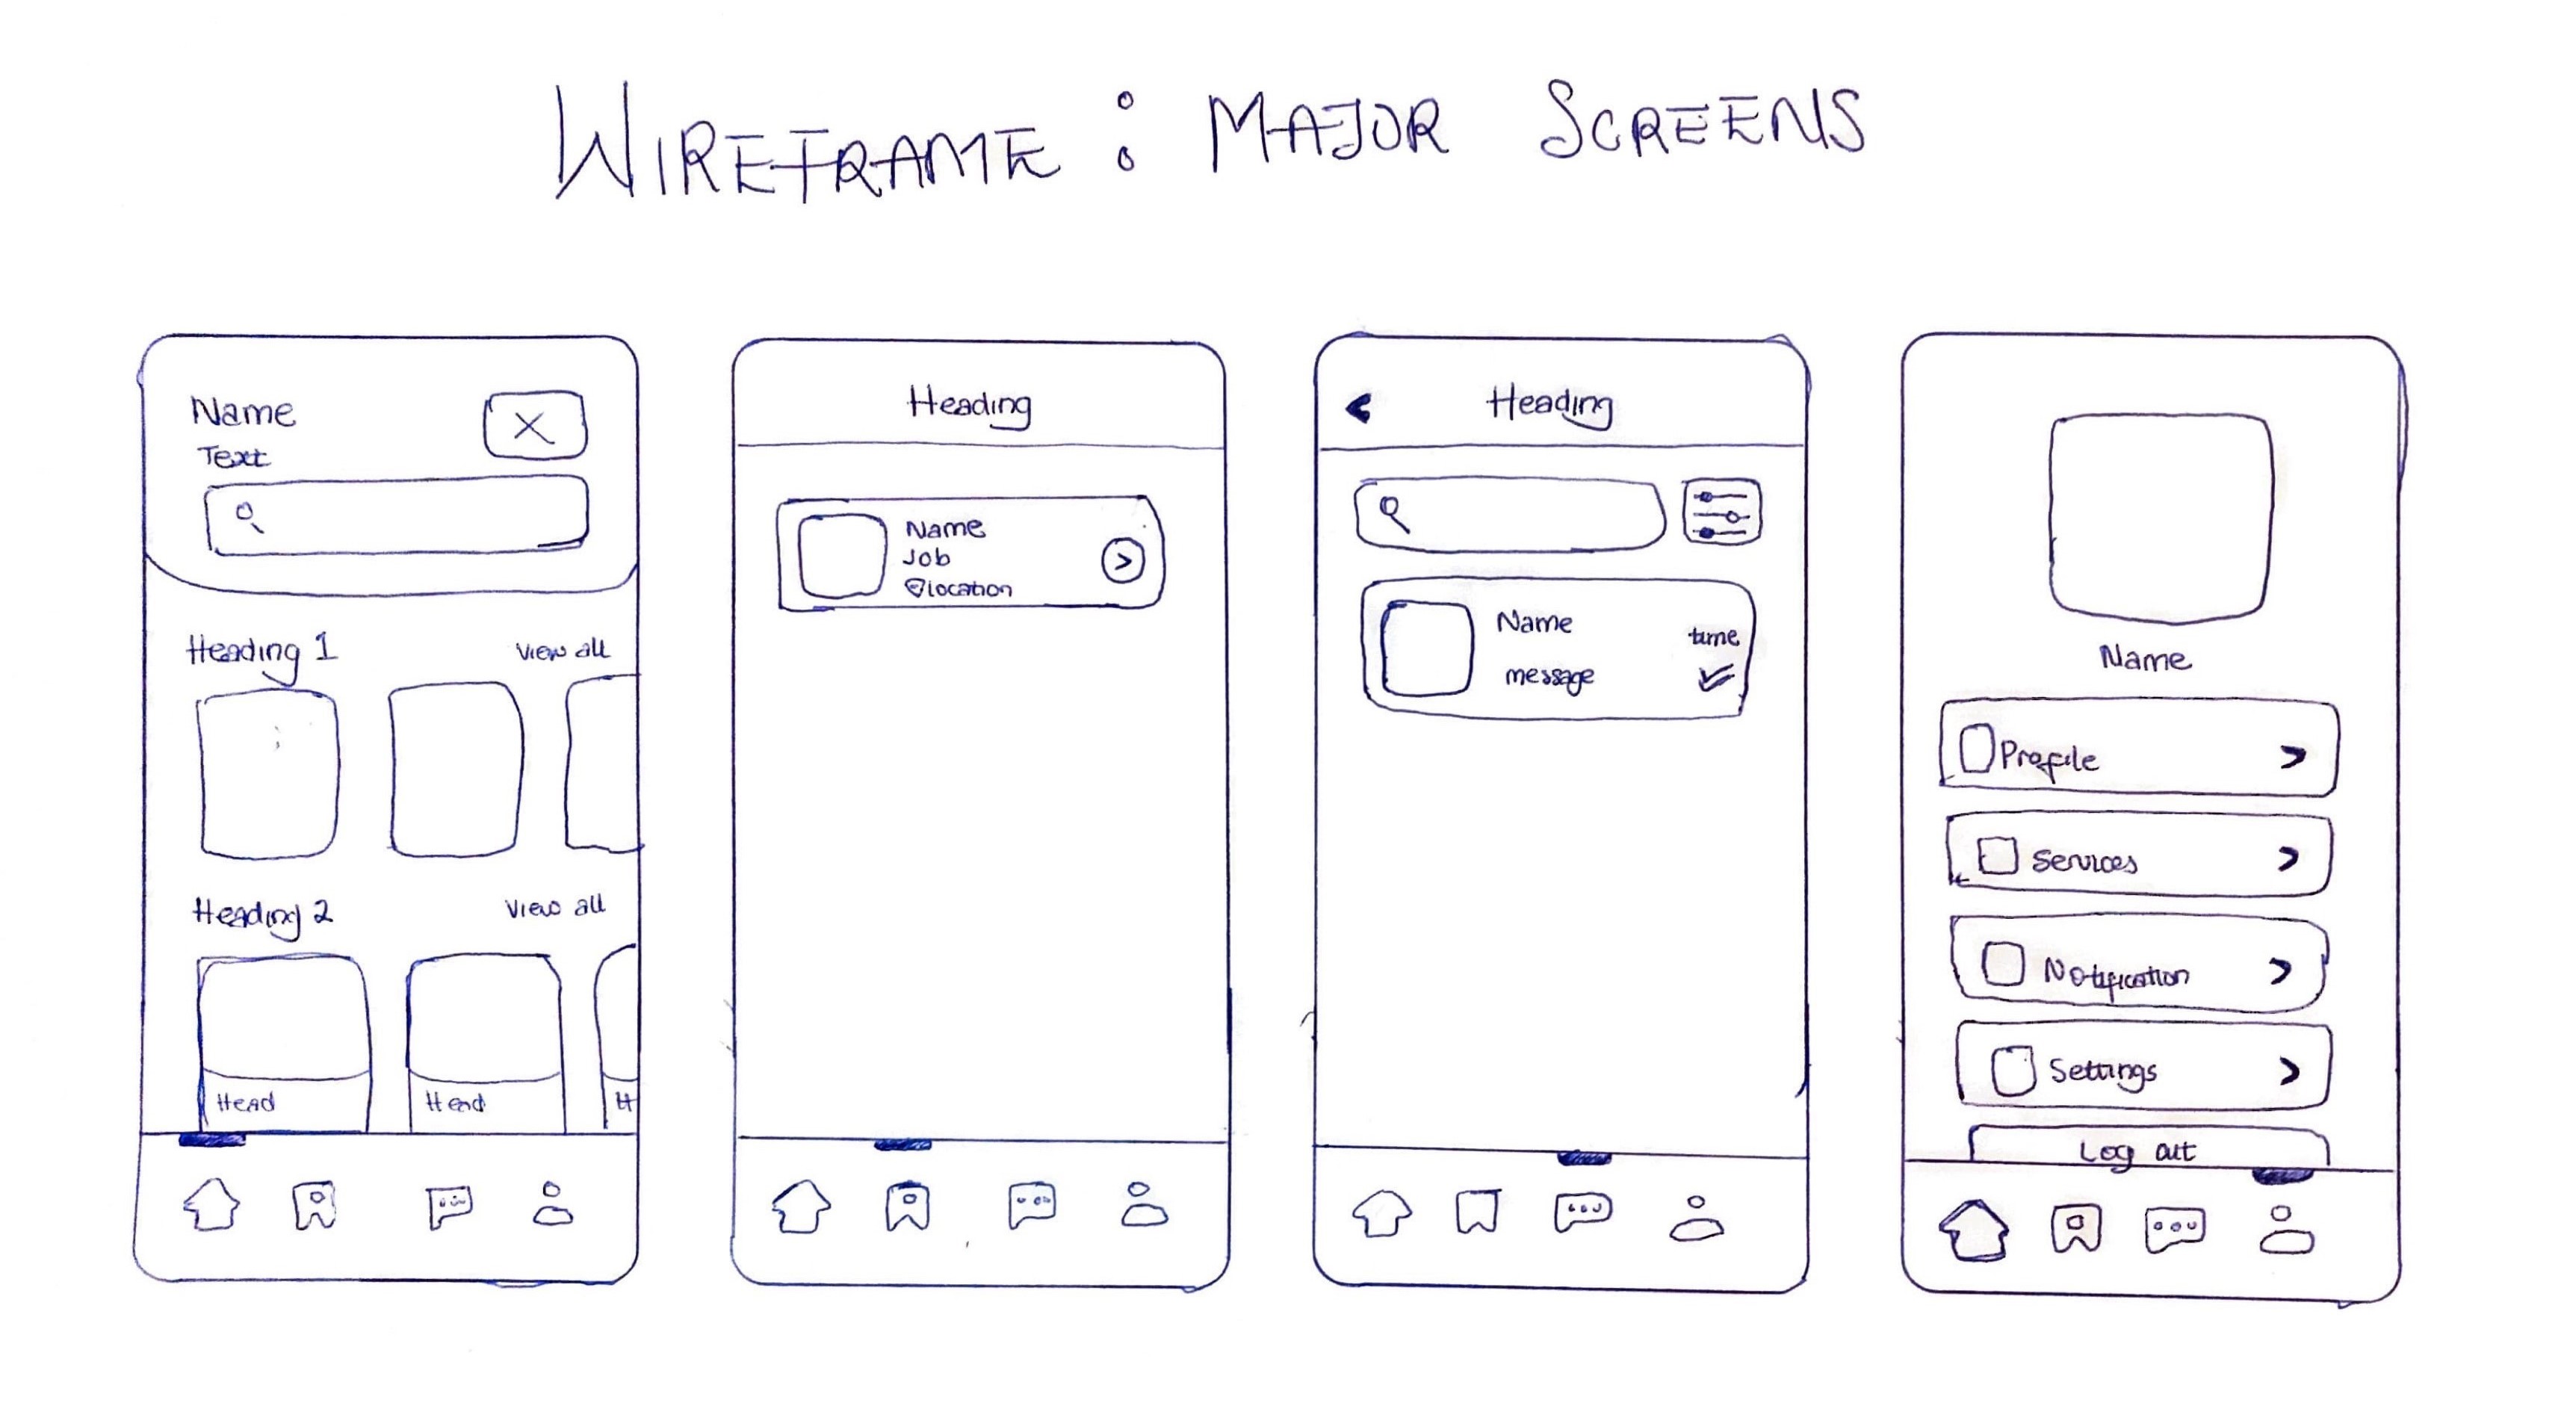 WIREFRAME : MAJOR SCREENS
Name
Text
Heading 1 View all
Heading 2 View all
Head Head H
Heading
Name
Job
location
Heading
Name time
message
Name
Profile
Services
Notification
Settings
Log out